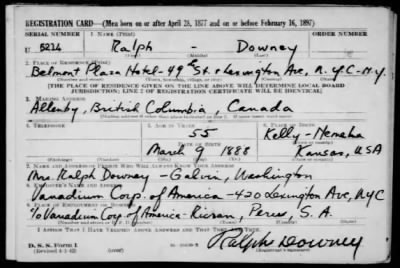 REGISTRATION CARD—(Men born on or after April 28, 1877 and on or before February 16, 1897)
SERIAL NUMBER 1. NAME (Print) ORDER NUMBER
U 5214 Ralph - Downey
2. PLACE OF RESIDENCE (Print)
Belmont Plaza Hotel-49th St. & Lexington Ave, N.Y.C-N.Y.
[THE PLACE OF RESIDENCE GIVEN ON THE LINE ABOVE WILL DETERMINE LOCAL BOARD
JURISDICTION; LINE 2 OF REGISTRATION CERTIFICATE WILL BE IDENTICAL]
3. MAILING ADDRESS
Allenby, British Columbia, Canada
4. TELEPHONE 5. AGE IN YEARS 6. PLACE OF BIRTH
55 Kelly-Nemaha
DATE OF BIRTH
March 9 1888 Kansas, USA
7. NAME AND ADDRESS OF PERSON WHO WILL ALWAYS KNOW YOUR ADDRESS
Mrs. Ralph Downey - Galvin, Washington
8. EMPLOYER'S NAME AND ADDRESS
Vanadium Corp. of America-420 Lexington Ave, NYC
9. PLACE OF EMPLOYMENT OR BUSINESS
℅ Vanadium Corp of America - Ricran, Peru, S. A.
I AFFIRM THAT I HAVE VERIFIED ABOVE ANSWERS AND THAT THEY ARE TRUE.
D. S. S. Form 1
(Revised 4-1-42)
Ralph Downey